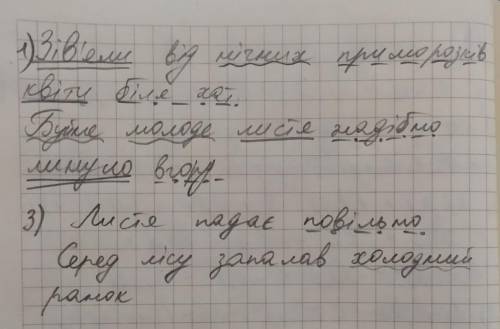 1) Зів'яли від нічних приморозків
квіти біля хат.
Буйне молоде листя жадібно
линуло вгору.
3) Листя падає повільно.
Серед лісу запалав холодний
ранок